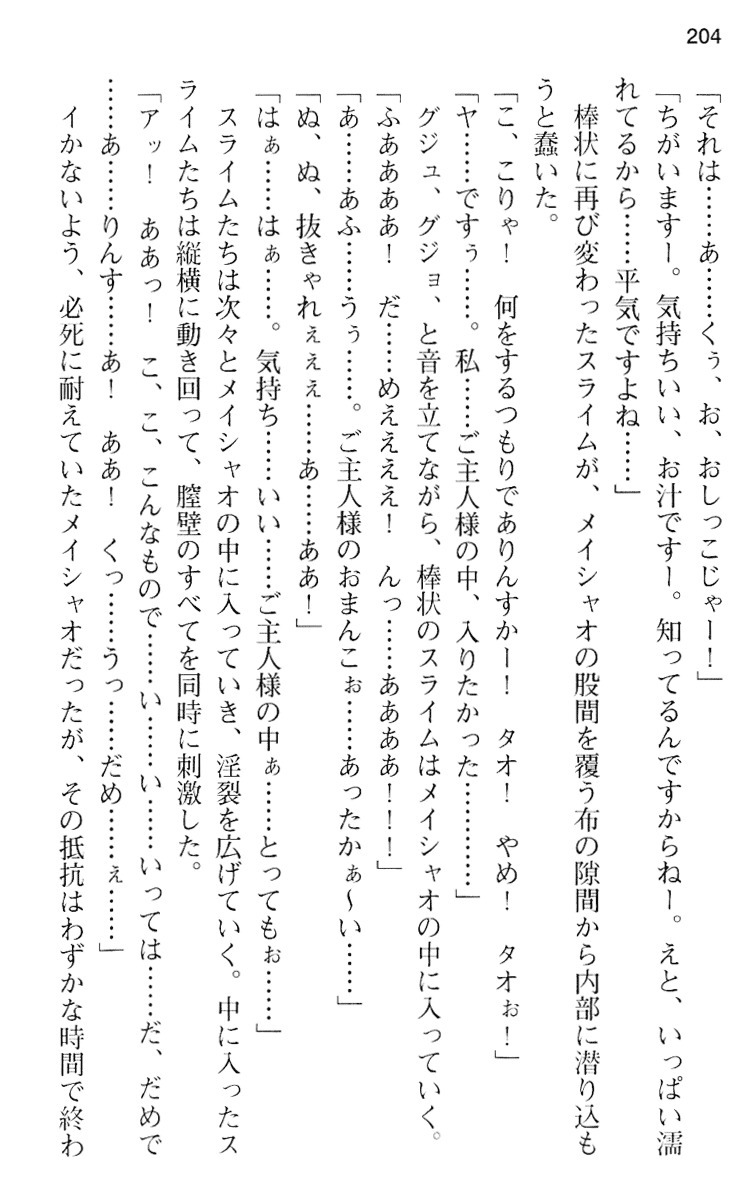 204
「それは……あ……くぅ、お、おしっこじゃー！」
「ちがいますー。気持ちいい、お汁ですー。知ってるんですからねー。えと、いっぱい濡
れてるから……平気ですよね……」
棒状に再び変わったスライムが、メイシャオの股間を覆う布の隙間から内部に潜り込も
うと蠢いた。
「こ、こりゃ！　何をするつもりでありんすかー！　タオ！　やめ！　タオぉ！」
「ヤ……ですぅ……。私……ご主人様の中、入りたかった…………」
グジュ、グジョ、と音を立てながら、棒状のスライムはメイシャオの中に入っていく。
「ふああああ！　だ……めええええ！　んっ……ああああ！！！」
「あ……あふ……うぅ……。ご主人様のおまんこぉ……あったかぁ〜い……」
「ぬ、ぬ、抜きゃれぇぇぇ……あ……ああ！」
「はぁ……はぁ……。気持ち……いい……ご主人様の中ぁ……とってもぉ……」
スライムたちは次々とメイシャオの中に入っていき、淫裂を広げていく。中に入ったス
ライムたちは縦横に動き回って、膣壁のすべてを同時に刺激した。
「アッ！　ああっ！　こ、こ、こんなもので……い……い……いっては……だ、だめで
……あ……りんす……あ！　ああ！　くっ……うっ……だめ……ぇ……」
イかないよう、必死に耐えていたメイシャオだったが、その抵抗はわずかな時間で終わ